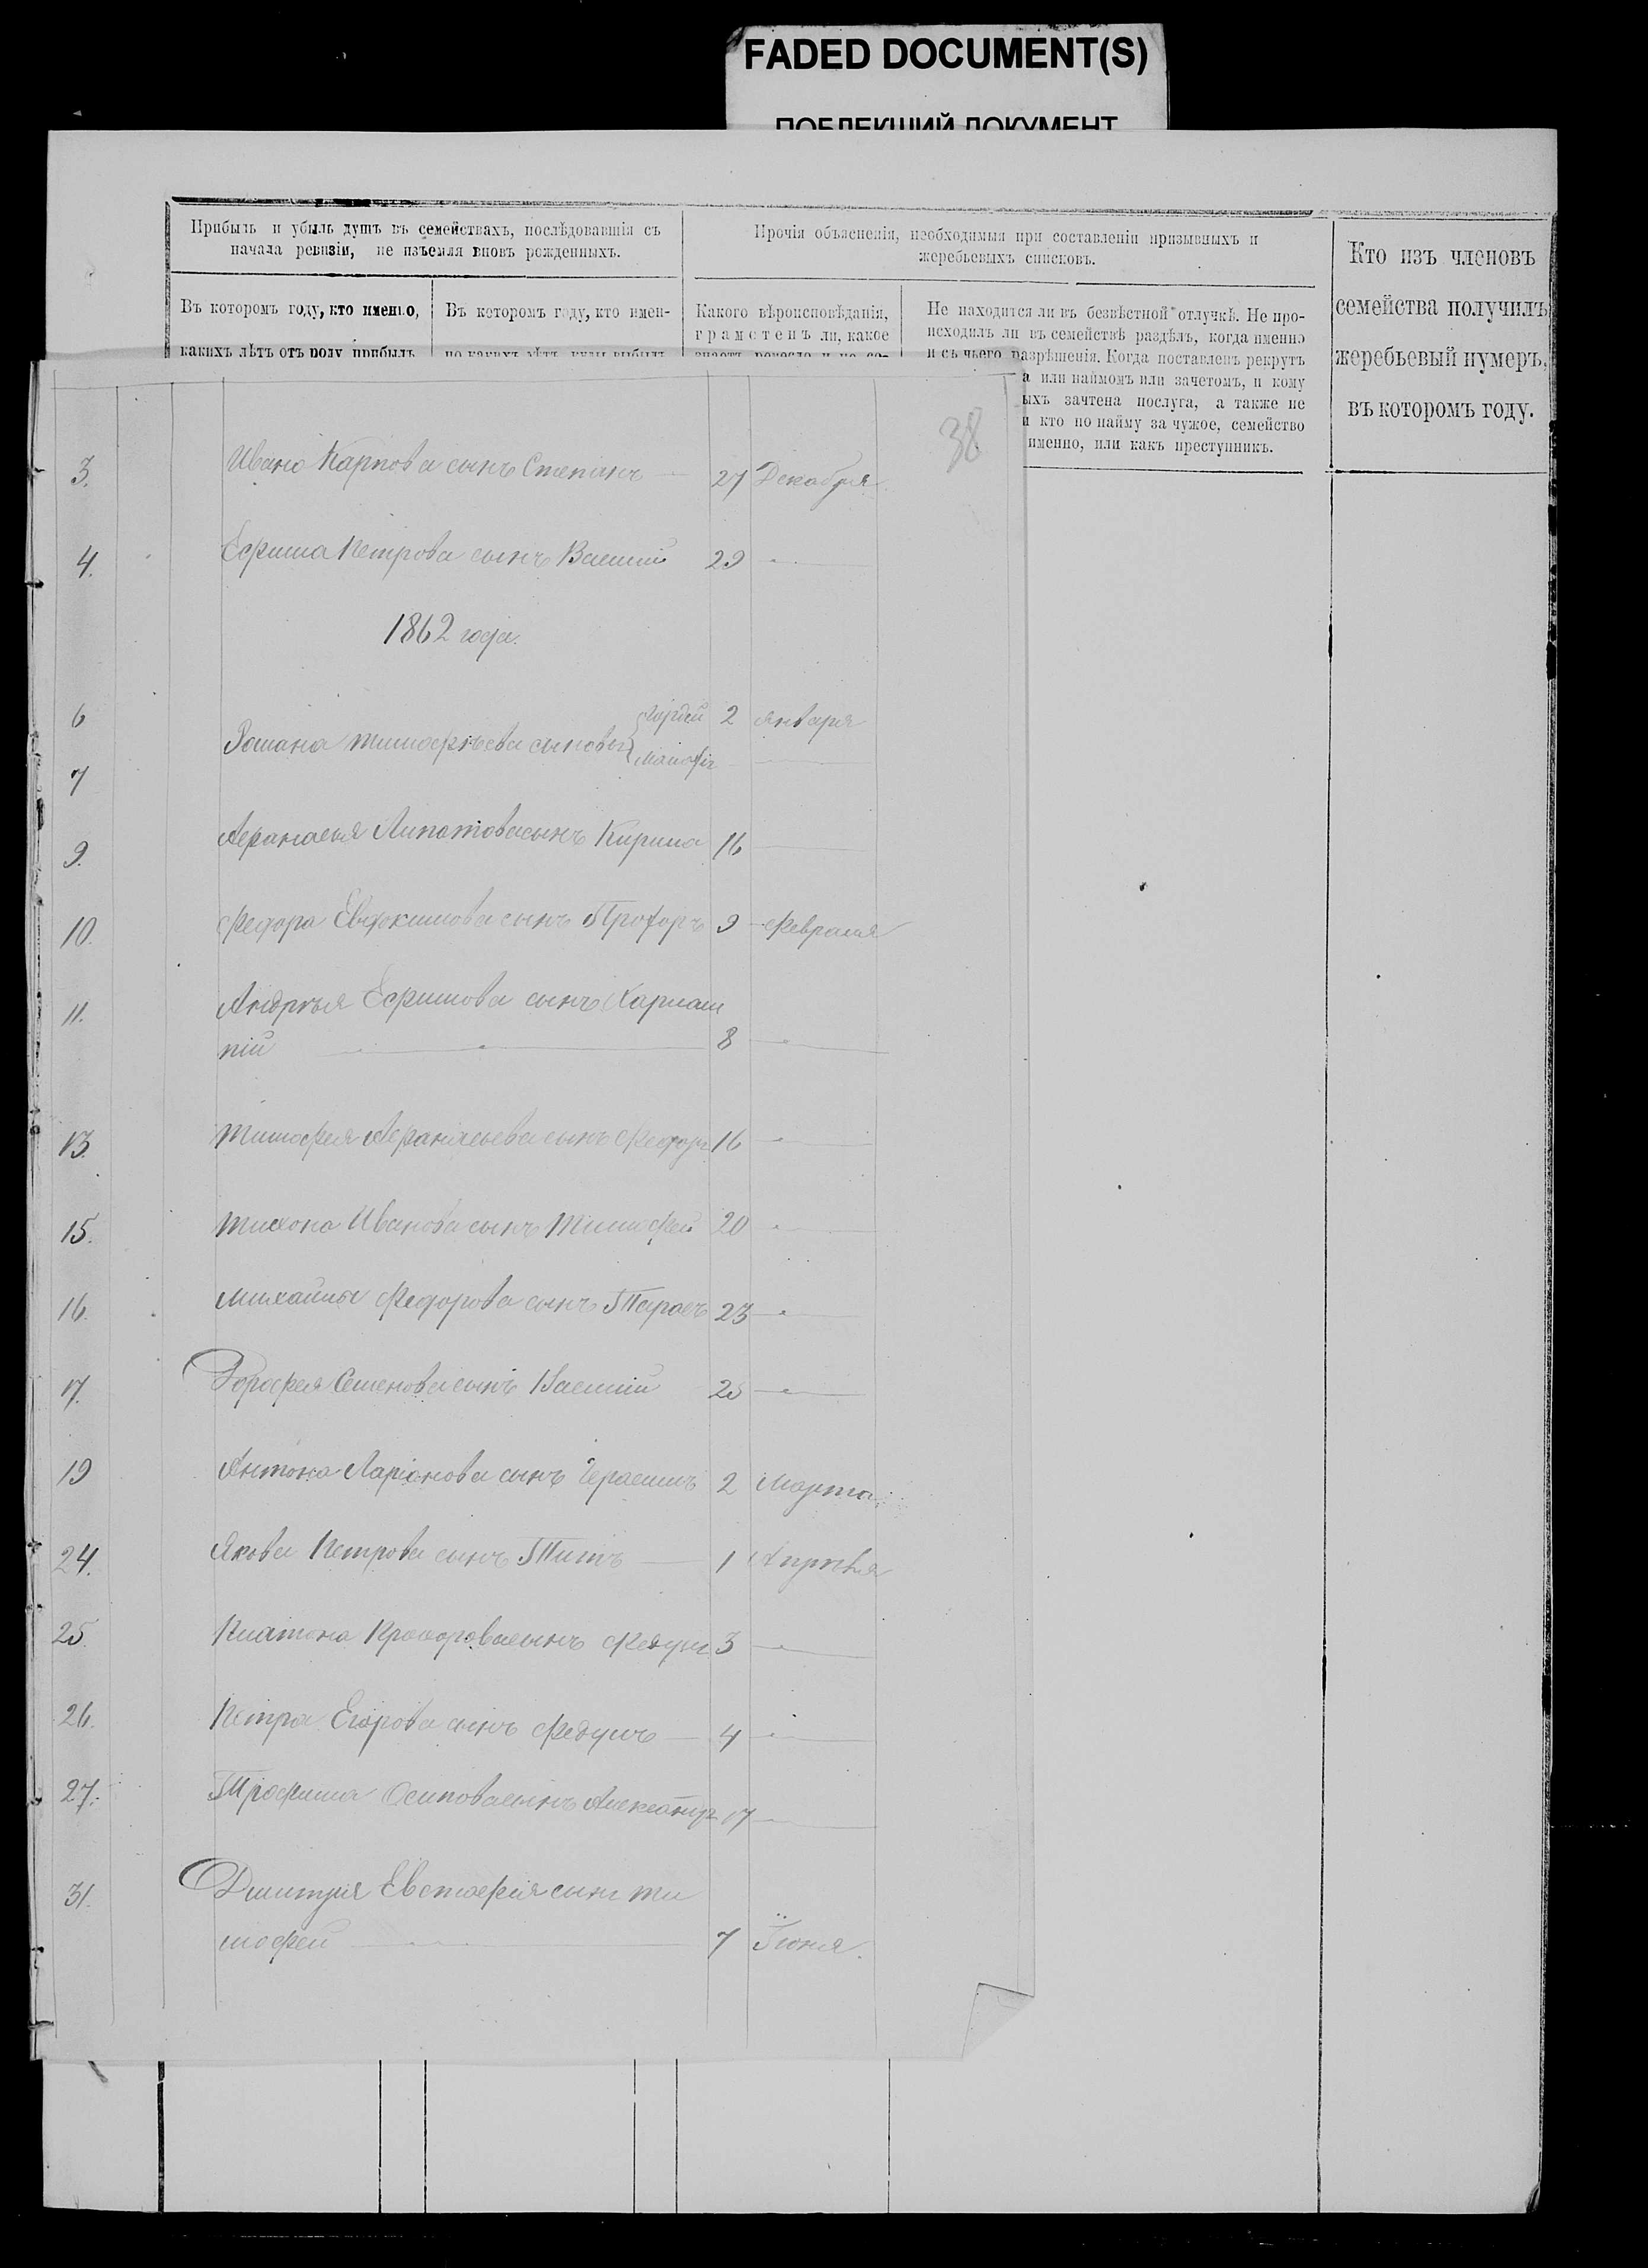 FADED DOCUMENT(S)
ПОБЛЕКШИЙ ДОКУМЕНТ
Прибыль и убыль душъ въ семействахъ, послѣдовавшія съ
начала ревизіи, не изъемля вновь рожденныхъ.
Прочія объясненія, необходимыя при составленіи призывныхъ и
жеребьевыхъ списковъ.
Кто изъ членовъ
семейства получилъ
жеребьевый нумеръ,
въ которомъ году.
Въ которомъ году, кто именно,
какихъ лѣтъ отъ роду прибылъ
Въ которомъ году, кто имен-
но какихъ лѣтъ, куда выбылъ
Какого вѣроисповѣданія,
грамотенъ ли, какое
знаетъ ремесло и не со-
Не находится ли въ безвѣстной отлучкѣ. Не про-
исходилъ ли въ семействѣ раздѣлъ, когда именно
и съ чьего разрѣшенія. Когда поставленъ рекрутъ
а или наймомъ или зачетомъ, и кому
ыхъ зачтена послуга, а также не
и кто по найму за чужое, семейство
именно, или какъ преступникъ.
38
3. Ивана Карпова сынъ Степанъ — 27 Декабря
4. Ефима Петрова сынъ Василій 29 —
1862 года.
6 Гордѣй 2 Января
Романа Тимофѣева сыновья
7 —
9. Афанасья Липатова сынъ Кирила 16 —
10. Федора Евдокимова сынъ 9 Февраля
11. Андрѣя Ефимова сынъ Харлам
пій — 8 —
13. Тимофея Афанасьева сынъ Федоръ 16 —
15. Тихона Иванова сынъ Тимофей 20 —
16. Михайлы Федорова сынъ Тарасъ 23 —
17. Дорофея Семенова сынъ Василий 25 —
19 Антона Ларіонова сынъ Герасимъ 2 Марта
24. Якова Петрова сынъ Титъ — 1 Апрѣля
25. Платона Прохорова сынъ 3 —
26. Петра Егорова сынъ Федулъ — 4 —
27. Трофима Осипова сынъ Александръ 17 —
31. Дмитрия Евстафія сынъ Ти
мофей — 7 Іюня.